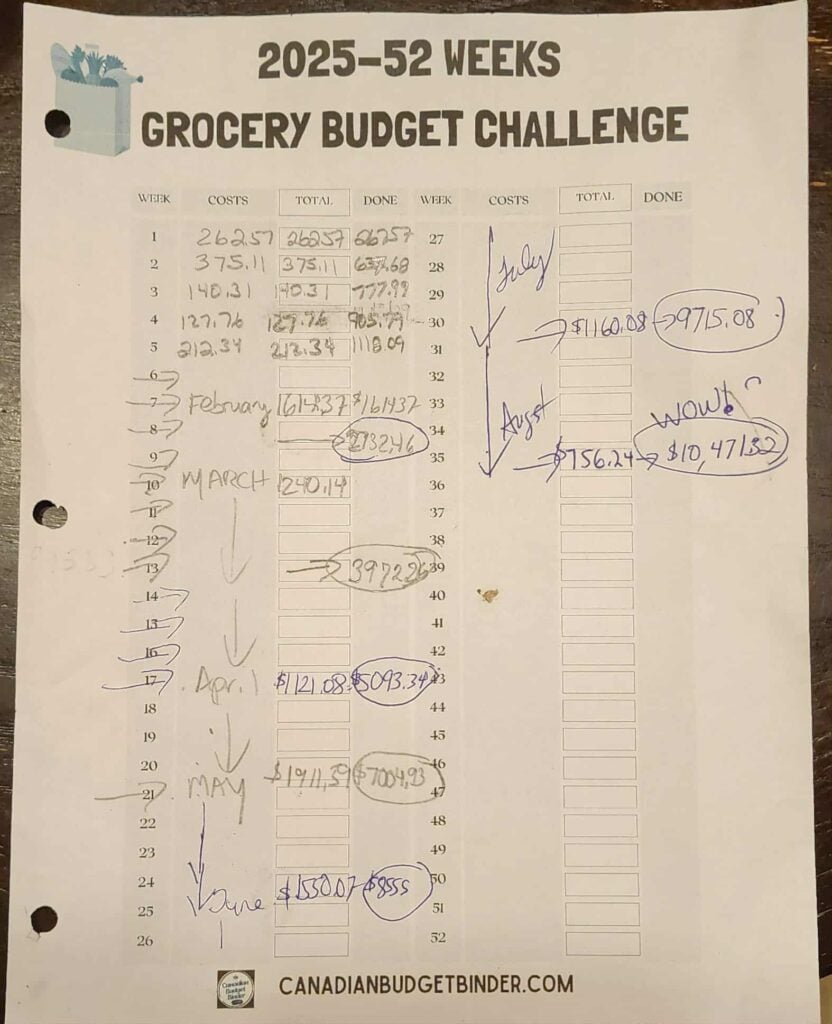 2025-52 WEEKS
GROCERY BUDGET CHALLENGE
WEEK COSTS TOTAL DONE WEEK COSTS TOTAL DONE
1 262.57 262.57 262.57 27
2 375.11 375.11 637.68 28 July
3 140.31 140.31 777.99 29
4 127.76 127.76 905.79 30 $1160.08 9715.08
5 212.34 212.34 1118.09 31
6 32
7 February 1614.37 $1614.37 33
8 2732.46 34 Augst WOW!
9 35 $756.24 $10,471.32
10 MARCH 1240.14 36
11 37
12 38
13 3972.26 39
14 40
15 41
16 42
17 April $1121.08 $5093.34 43
18 44
19 45
20 $1911.39 $7004.93 46
21 MAY 47
22 48
23 49
24 $1550.07 $8555 50
25 June 51
26 52
Canadian Budget Binder
CANADIANBUDGETBINDER.COM